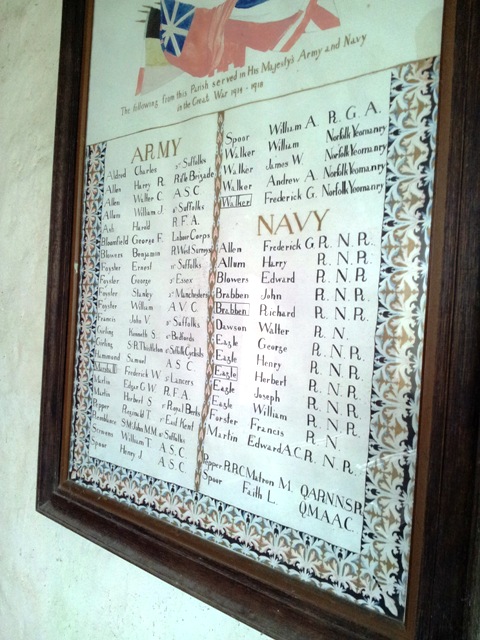 The following from this Parish served in His Majesty's Army and Navy
in the Great War 1914-1918
ARMY
Aldred Charles Suffolks
Allen Harry R. Rifle Brigade
Allen Walter C. A S C
Allum William J. Suffolks
Ash Harold R.F.A.
Bloomfield George E. Labour Corps
Blowers Benjamin R.West Surreys
Foyster Ernest Suffolks
Foyster George Essex
Foyster Stanley Manchesters
Foyster William A V C
Francis John V. Suffolks
Girling Kenneth S. Bedfords
Girling S.R. Suffolk Cyclists
Hammond Samuel A S C
Frederick W. Lancers
Martin Edgar G.W. R.F.A.
Martin Herbert S. Royal Bucks
Pepper Reginald T. East Kent
S.M. John M.M. Suffolks
Simmons William T. A.S.C.
Spoor Henry J. A.S.C.
Spoor William A. R.G.A.
Walker William Norfolk Yeomanry
Walker James W. Norfolk Yeomanry
Walker Andrew A. Norfolk Yeomanry
Walker Frederick G. Norfolk Yeomanry
NAVY
Allen Frederick G. R. N. R.
Allum Harry R. N. R.
Blowers Edward R. N. R.
Brabben John R. N. R.
Brabben Richard R. N. R.
Dawson Walter R. N.
Eagle George R. N. R.
Eagle Henry R. N. R.
Eagle Herbert R. N. R.
Eagle Joseph R. N. R.
Eagle William R. N. R.
Forster Francis R. N.
Martin Edward A.C. R. N. R.
Pepper R.R.C. Matron M. QARNNSR
Spoor Faith L. QMAAC